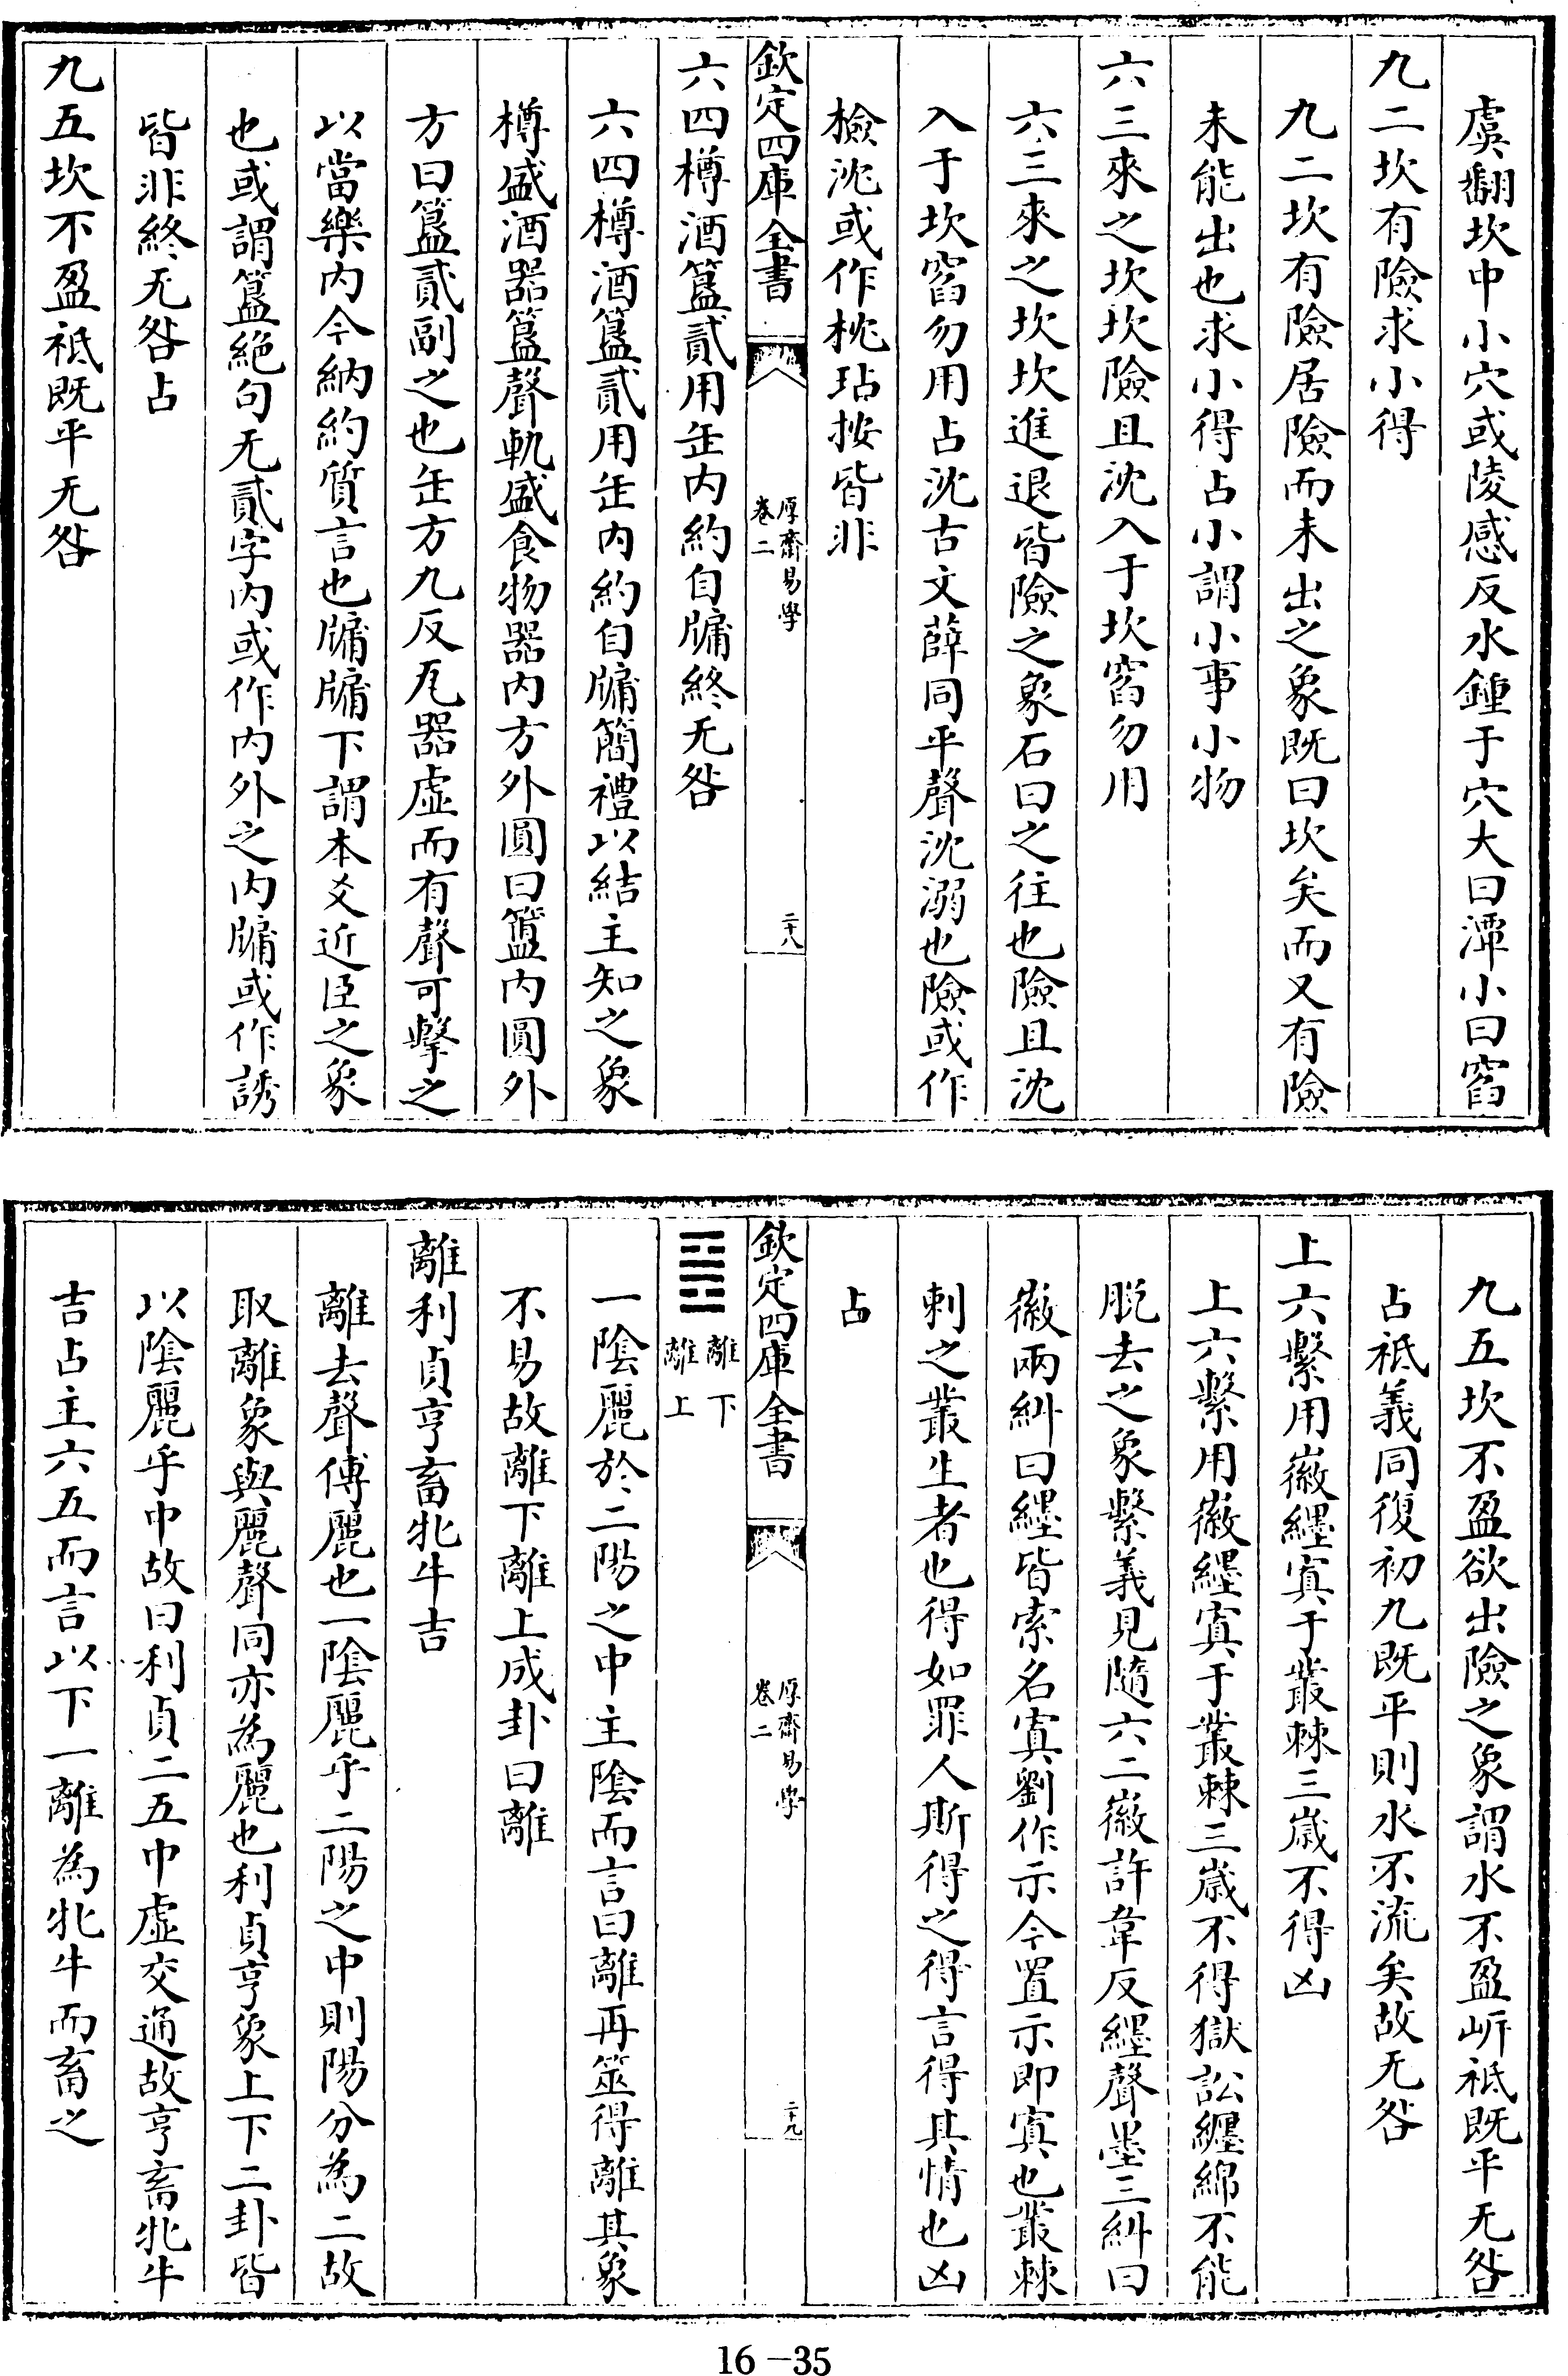 虞翻坎中小穴或陵感反水鍾于穴大曰潭小曰窞
九二坎有險求小得
九二坎有險居險而未出之象既曰坎矣而又有險
未能出也求小得占小謂小事小物
六三來之坎坎險且沈入于坎窞勿用
六三來之坎坎進退皆險之象石曰之往也險且沈
入于坎窞勿用占沈古文薛同平聲沈溺也險或作
檢沈或作枕玷按皆非
欽定四庫全書
厚齋易學
卷二
二十八
六四樽酒簋貳用缶内約自牖終无咎
六四樽酒簋貳用缶内約自牖簡禮以結主知之象
樽盛酒器簋聲軌盛食物器内方外圓曰簋内圓外
方曰簋貳副之也缶方九反瓦器虛而有聲可擊之
以當樂内今納約質言也牖牖下謂本爻近臣之象
也或謂簋絕句无貳字内或作内外之内牖或作誘
皆非終无咎占
九五坎不盈祗既平无咎
九五坎不盈欲出險之象謂水不盈岓祗既平无咎
占祗義同復初九既平則水不流矣故无咎
上六繫用徽纆寘于叢棘三歲不得凶
上六繫用徽纆寘于叢棘三歲不得獄訟纏綿不能
脫去之象繫義見隨六二徽許韋反纆聲墨三糾曰
徽兩糾曰纆皆索名寘劉作示今置示即寘也叢棘
刺之叢生者也得如罪人斯得之得言得其情也凶
占
欽定四庫全書
厚齋易學
卷二
二十九
䷝
離下
離上
一陰麗於二陽之中主陰而言曰離再筮得離其象
不易故離下離上成卦曰離
離利貞亨畜牝牛吉
離去聲傅麗也一陰麗乎二陽之中則陽分為二故
取離象與麗聲同亦為麗也利貞亨象上下二卦皆
以陰麗乎中故曰利貞二五中虛交通故亨畜牝牛
吉占主六五而言以下一離為牝牛而畜之
16-35